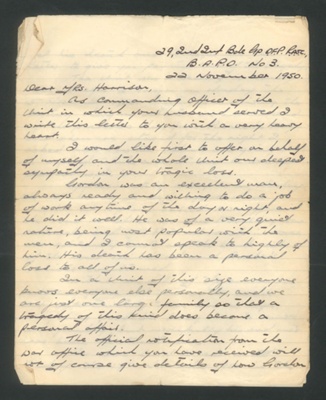 22 November 1950.
Dear Mrs. Harrison,
As Commanding Officer of the
Unit in which your husband served I
write this letter to you with a very heavy
heart.
I would like first to offer on behalf
of myself and the whole Unit our deepest
sympathy in your tragic loss.
Gordon was an excellent man,
always ready and willing to do a job
of work any time of the day or night and
he did it well. He was of a very quiet
nature, being most popular with the
men, and I cannot speak to highly of
him. His death has been a personal
loss to all of us.
In a Unit of this size everyone
knows everyone else personally and we
are just one long family so that a
tragedy of this kind does become a
personal affair.
The official notification from the
war office which you have received will
of course give details of how Gordon